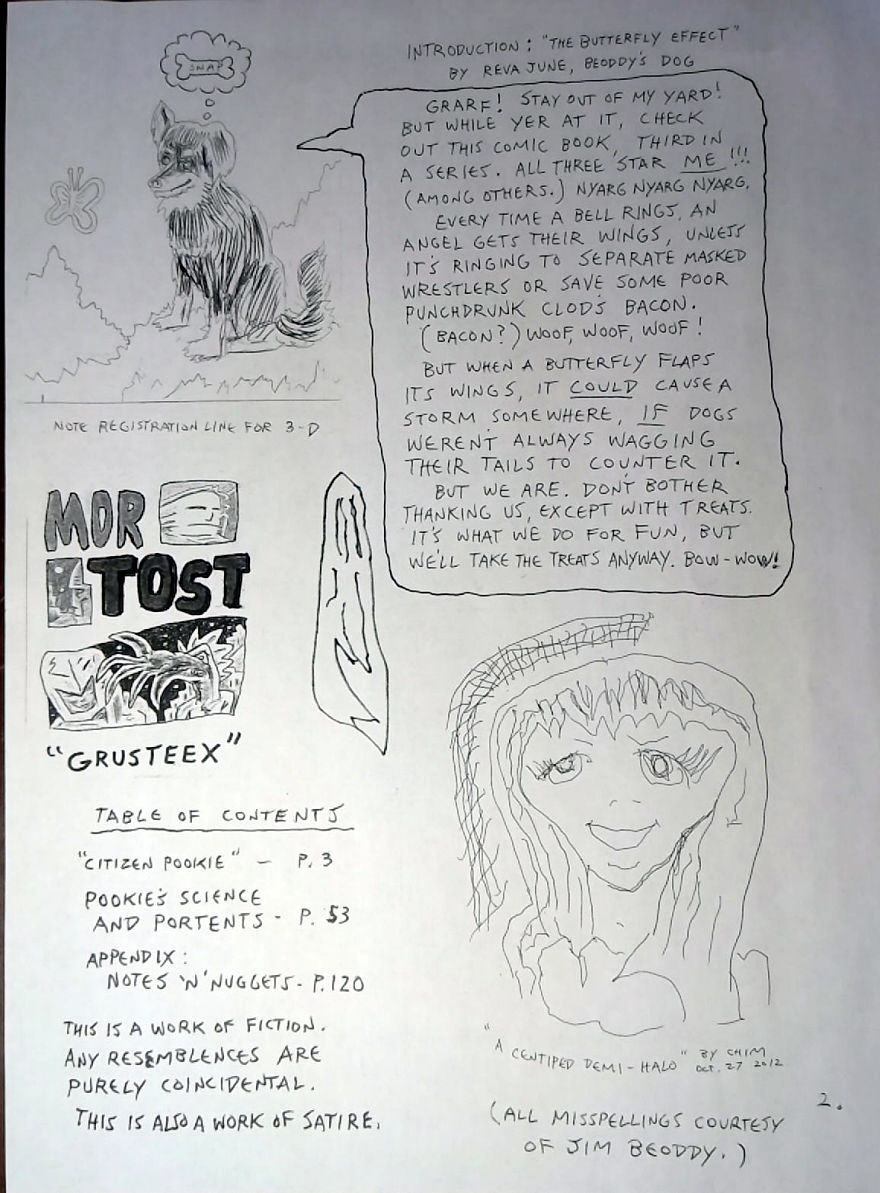 SNAP
INTRODUCTION: "THE BUTTERFLY EFFECT"
BY REVA JUNE, BEODDY'S DOG
GRARF! STAY OUT OF MY YARD!
BUT WHILE YER AT IT, CHECK
OUT THIS COMIC BOOK, THIRD IN
A SERIES. ALL THREE STAR ME!!!
(AMONG OTHERS.) NYARG NYARG NYARG.
EVERY TIME A BELL RINGS, AN
ANGEL GETS THEIR WINGS, UNLESS
IT'S RINGING TO SEPARATE MASKED
WRESTLERS OR SAVE SOME POOR
PUNCHDRUNK CLOD'S BACON.
(BACON?) WOOF, WOOF, WOOF!
BUT WHEN A BUTTERFLY FLAPS
ITS WINGS, IT COULD CAUSE A
STORM SOMEWHERE, IF DOGS
WEREN'T ALWAYS WAGGING
THEIR TAILS TO COUNTER IT.
BUT WE ARE. DON'T BOTHER
THANKING US, EXCEPT WITH TREATS.
IT'S WHAT WE DO FOR FUN, BUT
WE'LL TAKE THE TREATS ANYWAY. BOW-WOW!
NOTE REGISTRATION LINE FOR 3-D
MOR
TOST
"GRUSTEEX"
TABLE OF CONTENTS
"CITIZEN POOKIE" - P. 3
POOKIE'S SCIENCE
AND PORTENTS - P. 53
APPENDIX:
NOTES 'N' NUGGETS - P. 120
THIS IS A WORK OF FICTION.
ANY RESEMBLENCES ARE
PURELY COINCIDENTAL.
THIS IS ALSO A WORK OF SATIRE.
"A CENTIPED DEMI-HALO" BY CHIM
OCT. 27 2012
(ALL MISSPELLINGS COURTESY
OF JIM BEODDY.)
2.